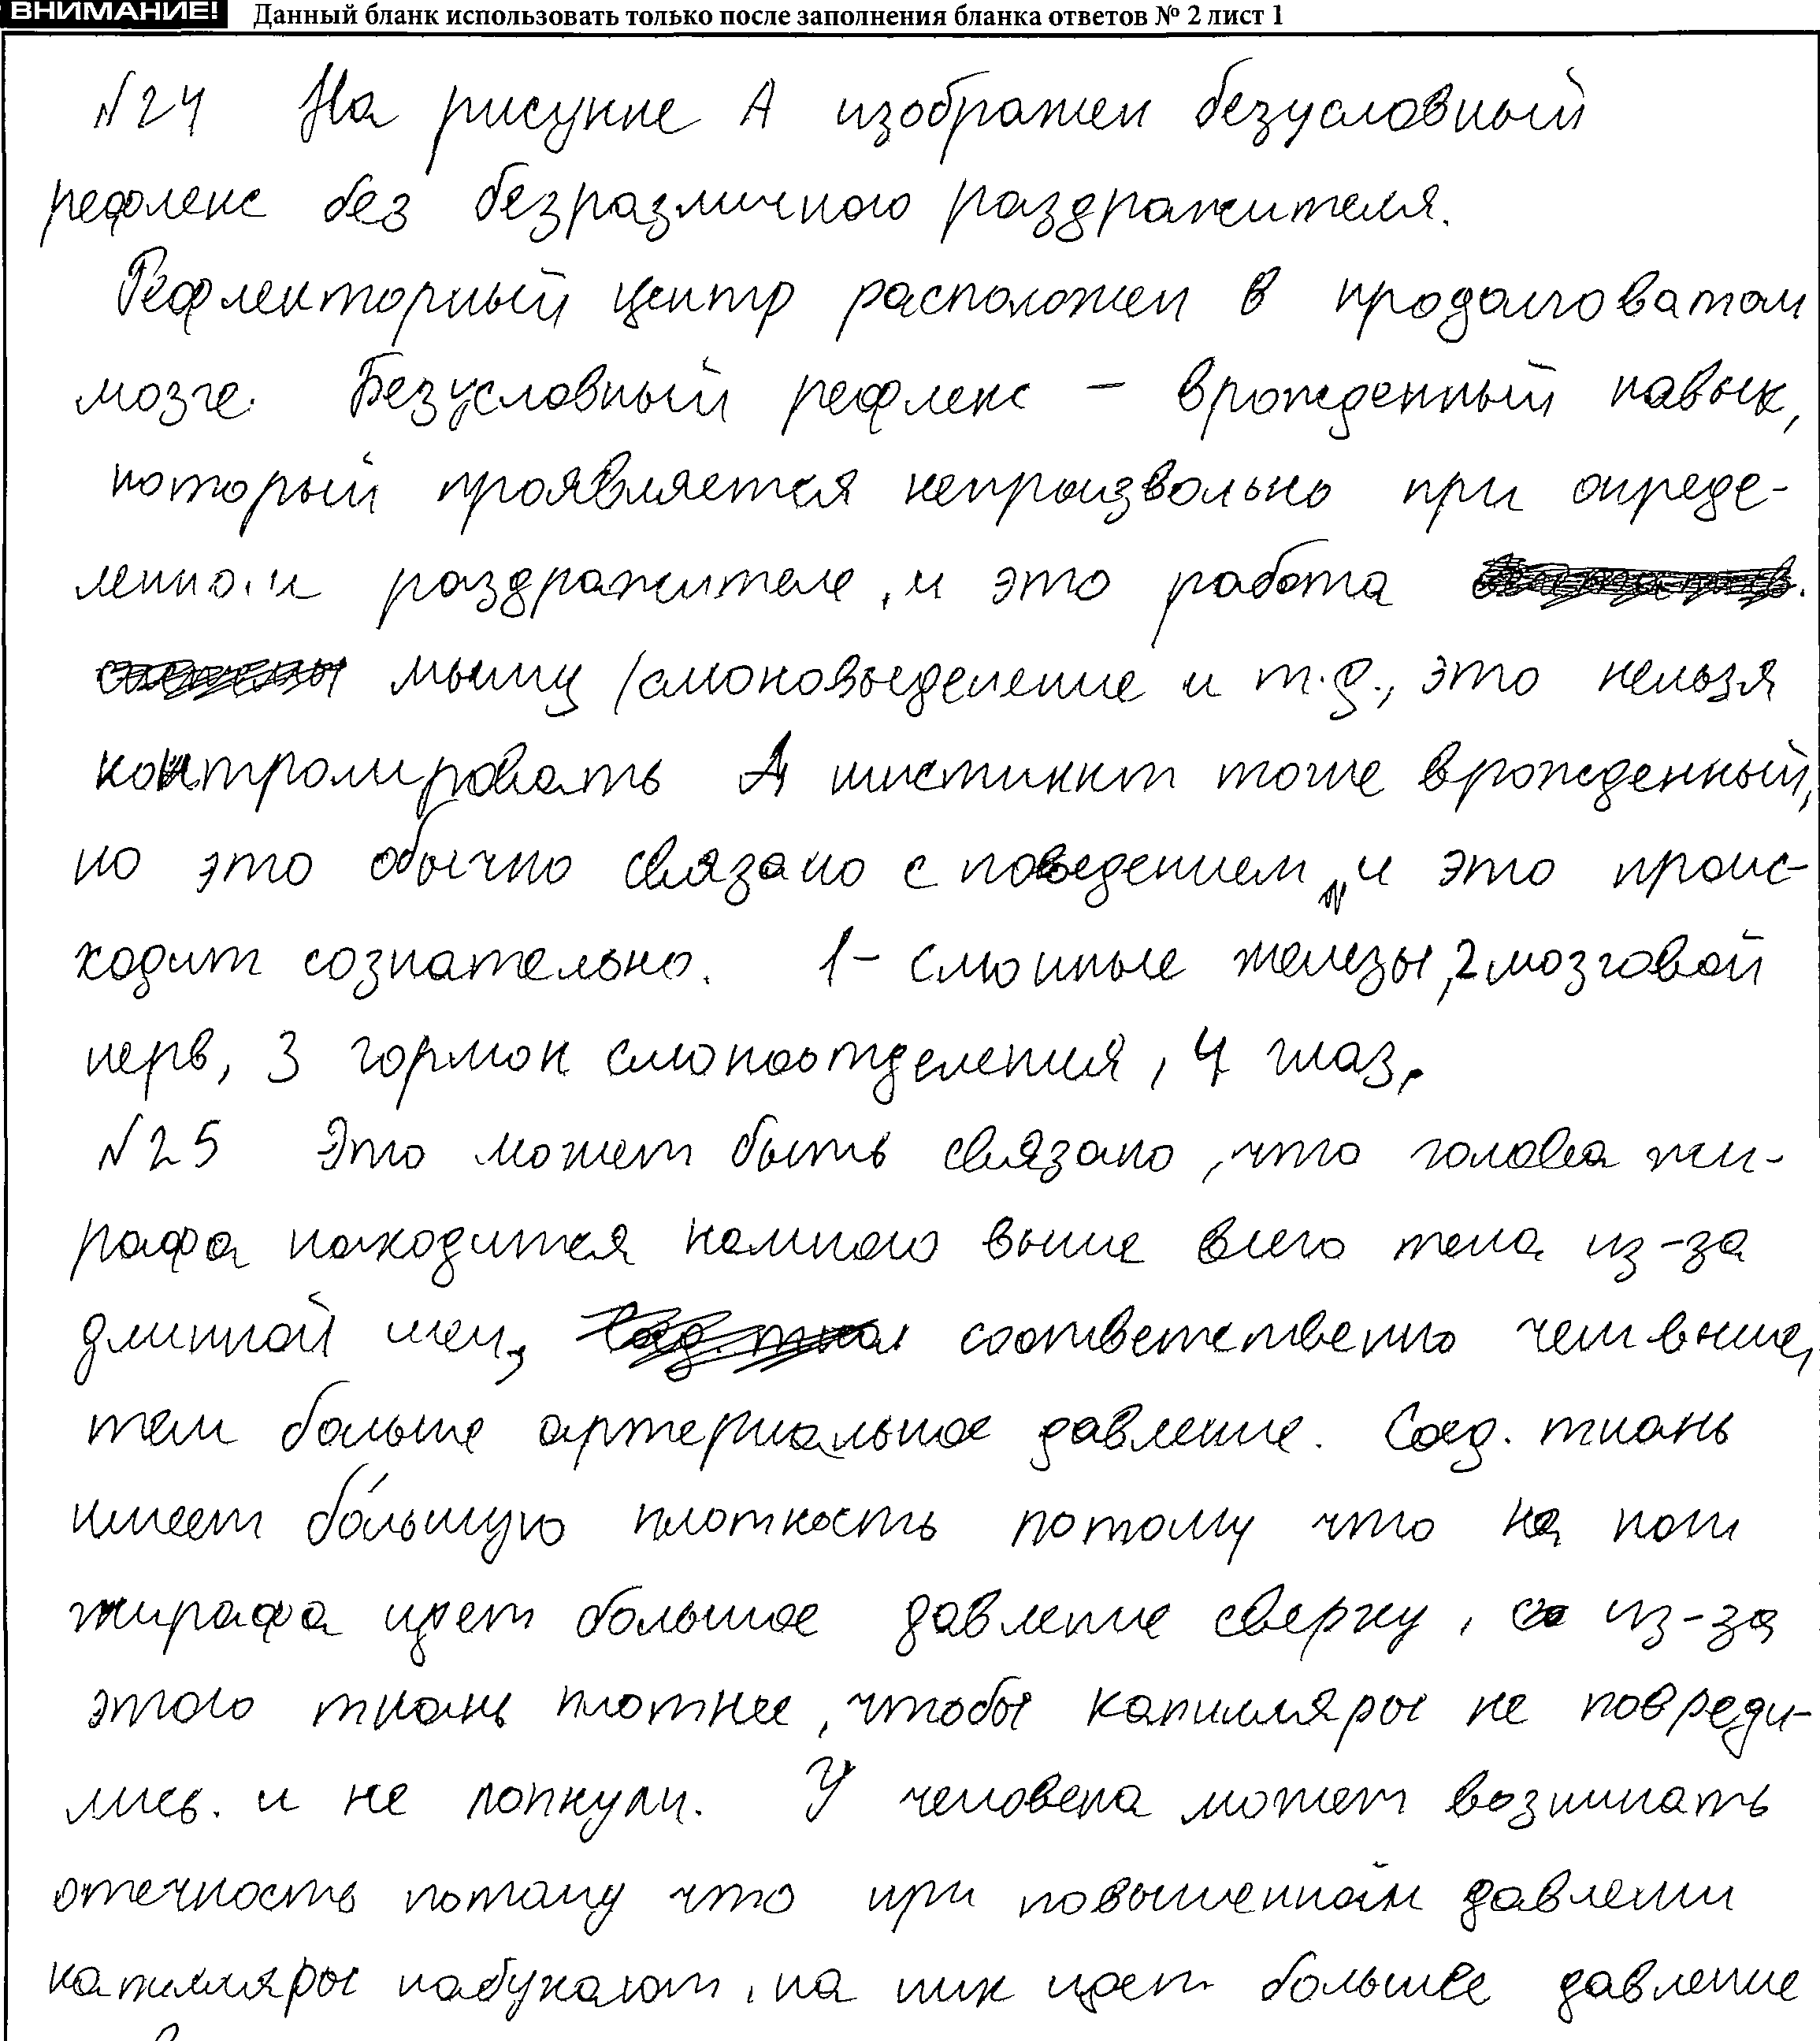 ВНИМАНИЕ! Данный бланк использовать только после заполнения бланка ответов № 2 лист 1
№24 На рисунке А изображен безусловный
рефлекс без безразличного раздражителя.
Рефлекторный центр расположен в продолговатом
мозге. Безусловный рефлекс – врожденный навык,
который проявляется непроизвольно при опреде-
ленном раздражителе, и это работа
мышц /слюновыделение и т.д., это нельзя
контролировать А инстинкт тоже врожденный,
но это обычно связано с поведением, и это проис-
ходит сознательно. 1– слюнные железы, 2 мозговой
нерв, 3 гормон слюноотделения, 4 глаз.
№25 Это может быть связано, что голова жи-
рафа находится намного выше всего тела из-за
длинной шеи, соответственно чем выше,
тем больше артериальное давление. Соед. ткань
имеет бо́льшую плотность потому что на ноги
жирафа идет большое давление сверху, из-за
этого ткань плотнее, чтобы капилляры не повреди-
лись. и не лопнули. У человека может возникать
отечность потому что при повышенном давлении
капилляры набухают, на них идет большее давление